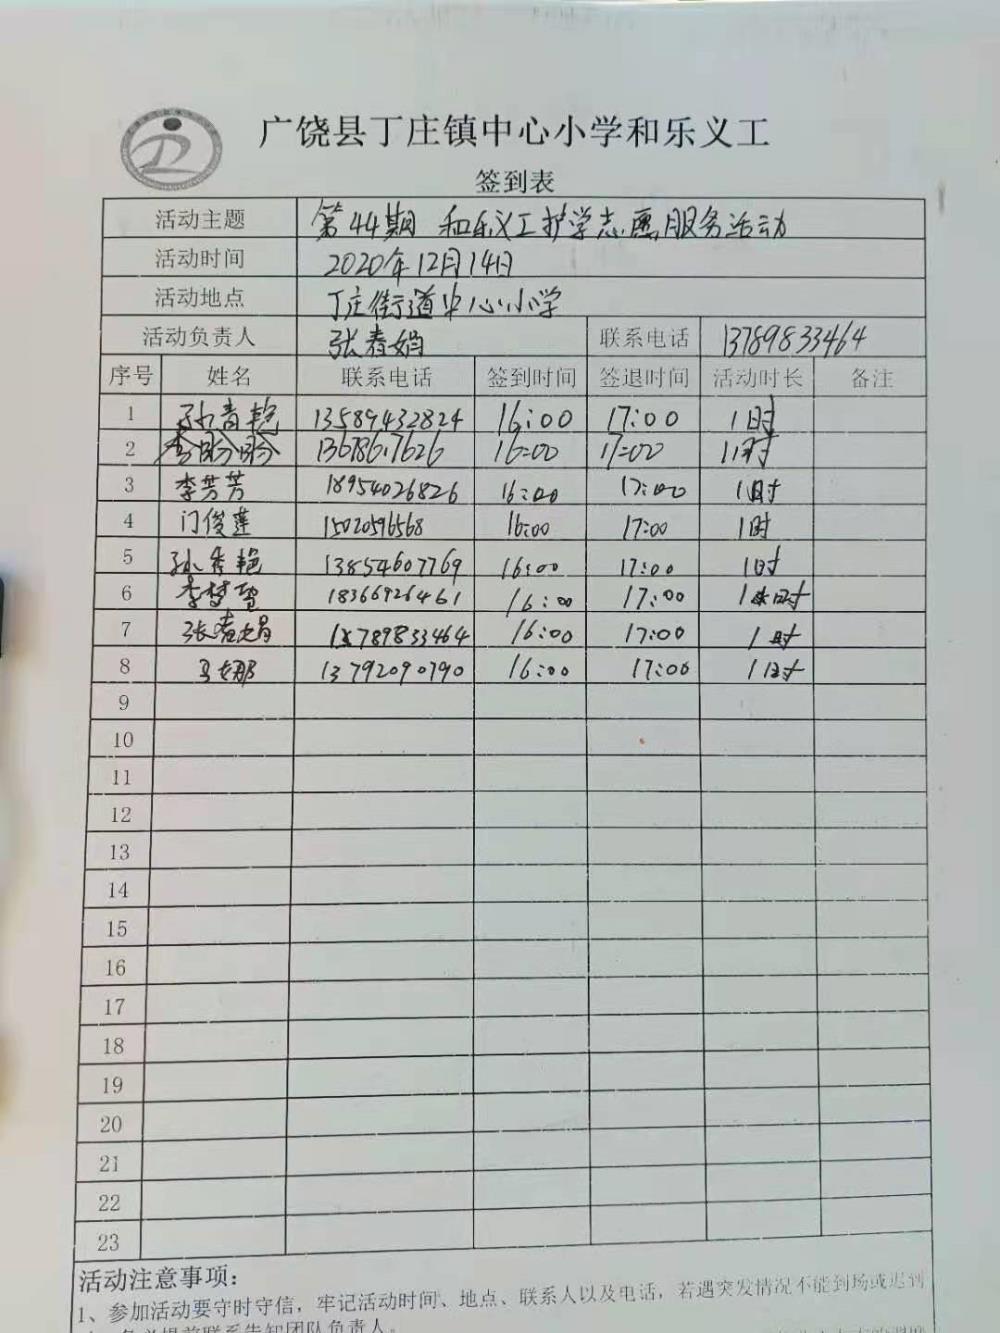 广饶县丁庄镇中心小学和乐义工
签到表
活动主题 第44期 和乐义工护学志愿服务活动
活动时间 2020年12月14日
活动地点 丁庄街道中心小学
活动负责人 张春娟 联系电话 13789833464
序号 姓名 联系电话 签到时间 签退时间 活动时长 备注
1 孙青艳 13589432824 16:00 17:00 1时
2 李盼盼 16:00 17:00 1时
3 李芳芳 18954026826 16:00 17:00 1时
4 门俊莲 15020596568 16:00 17:00 1时
5 孙秀艳 13854607769 16:00 17:00 1时
6 李梦雪 18366926461 16:00 17:00 1时
7 张春娟 13789833464 16:00 17:00 1时
8 马娜 13792090790 16:00 17:00 1时
9
10
11
12
13
14
15
16
17
18
19
20
21
22
23
活动注意事项：
1、参加活动要守时守信，牢记活动时间、地点、联系人以及电话，若遇突发情况不能到场或迟到
务必提前联系告知团队负责人。